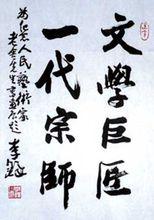 文學巨匠
一代宗師
人民藝術家
老舍先生
李鐸